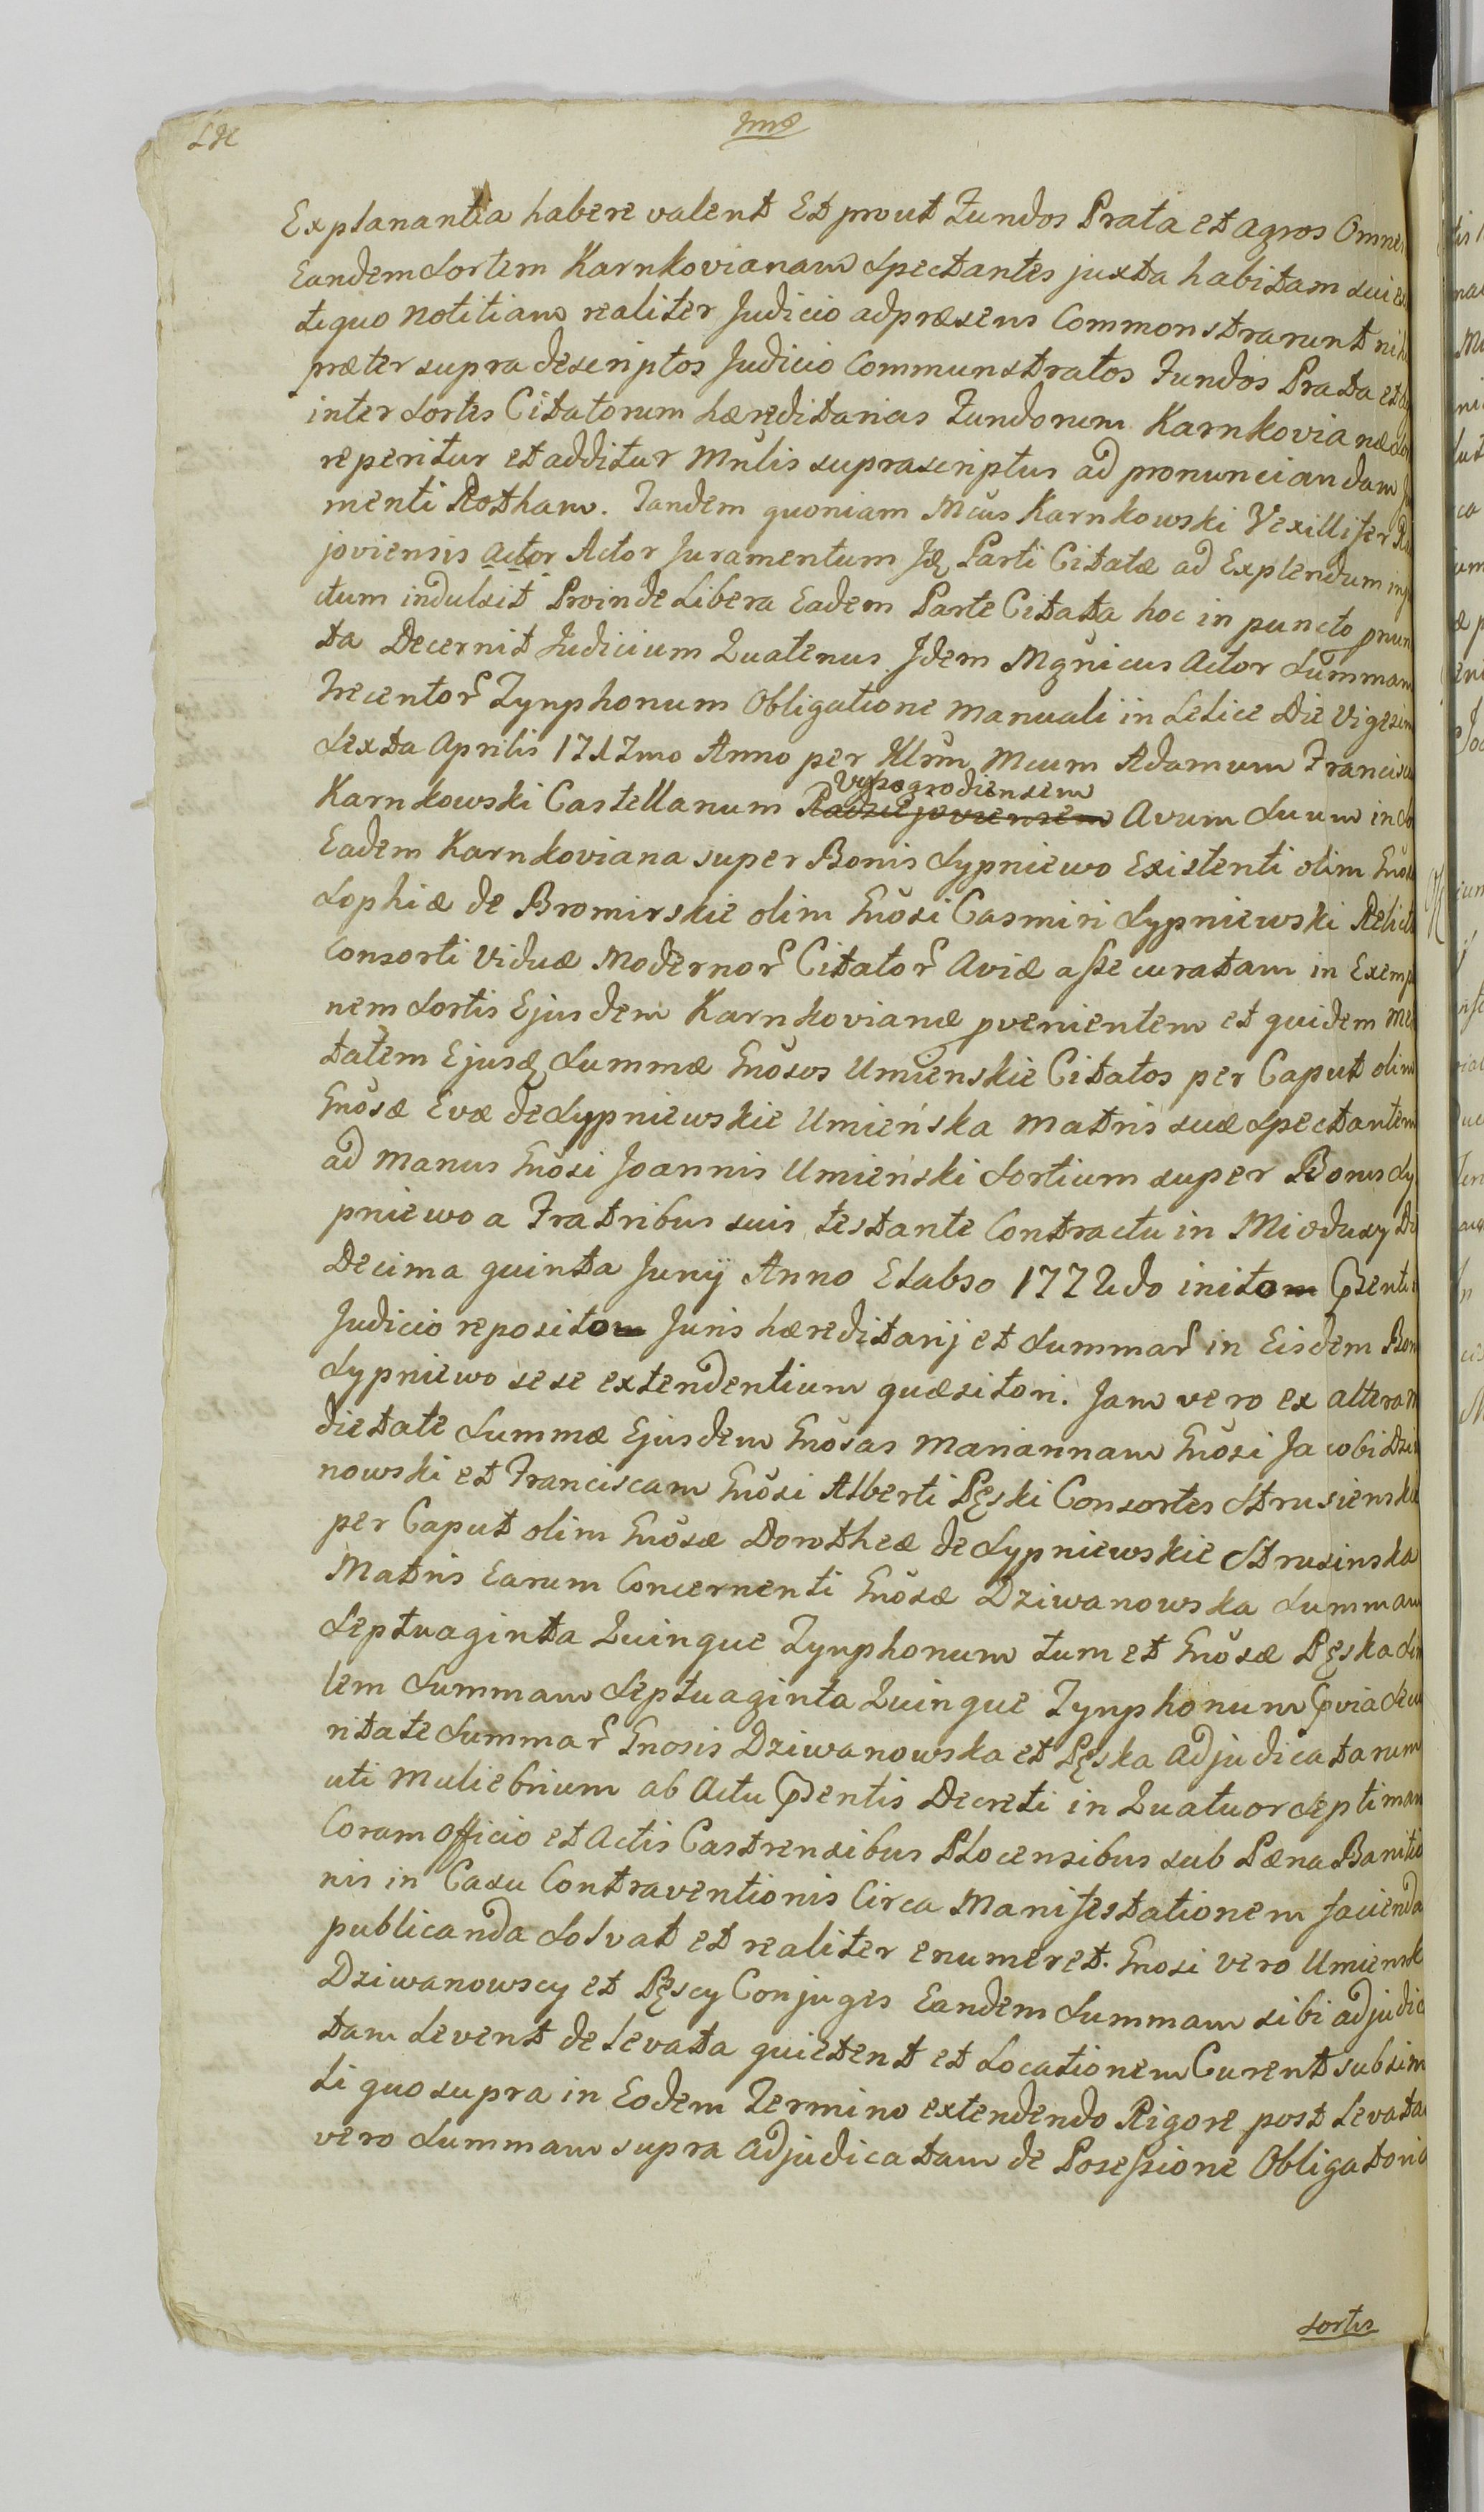 Explanantia habere valent Et prout Fundos Prata et agros Omnes
Eandem Sortem Karnkovianam Spectantes juxta habitam sui ex
tiquo notitiam realiter Judicio adpræsens Commonstrarunt
præter supra descriptos Judicio Communstratos Fundos Prata et
inter Sortes Citatorum hæreditarias Fundorum Karnkovianæ
reperitur et additur Mnlis suprascriptus ad pronunciandam
menti Rotham. Tandem quoniam Mcus Karnkowski Vexillifer
joviensis actor Actor Juramentum Jdę Parti Citatæ ad Explendum inj
ctum indulsit Proinde Libera Eadem Parte Citata hoc in puncto pnun
ta Decernit Judicium Quatenus Jdem Mgnicus Actor Summam
Trecentor Tynphonum Obligatione Manuali in Selice Die Vigesim
Sexta Aprilis 1717mo Anno per Jllrm Mcum Adamum Francisc
Vyszogrodiensem
Karnkowski Castellanum Radziejoviensem Avum Suum in
Eadem Karnkoviana super Bonis Lypniewo Existenti olim Gnosæ
Sophiæ de Bromirskie olim Gnosi Casmiri Lypniewski Relictæ
Consorti Viduæ Modernor Citator Aviæ assecuratam in Exemp
nem Sortis Ejusdem Karnkovianæ pvenientem et quidem Me
tatem Ejusdę Summæ Gnosos Umienskie Citatos per Caput olim
Gnosæ Evæ de Lypniewskie Umieńska Matris suæ Spectantem
ad Manus Gnosi Joannis Umieński Sortium super Bonis Ly
pniewo a Fratribus suis testante Contractu in Mioduxy Di
Decima quinta Junÿ Anno Elabso 1772do initom Psenti
Judicio repositom Juris hæreditarij et Summar in Eisdem Bon
Lypniewo sese extendentium quæsitori. Jam vero ex altera
dietate Summæ Ejusdem Gnosas Mariannam Gnosi Jacobi Dzi
nowski et Franciscam Gnosi Alberti Pęski Consortes Strusienskie
per Caput olim Gnosæ Dorotheæ de Lypniewskie Strusinska
Matris Earum Concernenti Gnosæ Dziwanowska Summam
Septuaginta Quinque Tynphonum tum et Gnosæ Pęska
lem Summam Septuaginta Quinque Tynphonum Pvia Secu
ritate Summar Gnosis Dziwanowska et Pęska Adjudicatarum
uti Muliebrium ab Actu Psentis Decreti in Quatuor Septiman
Coram Officio et Actis Castrensibus Plocensibus sub Pæna Banitio
nis in Casu Contraventionis Circa Manifestationem facienda
publicanda Solvat et realiter enumeret. Gnosi vero Umiensk
Dziwanowscy et Pęscy Conjuges Eandem Summam sibi adjudic
tam Levent de Levata quietent et Locationem Curent sub sim
li quo supra in Eodem Termino extendendo Rigore post Levata
vero Summam supra Adjudicatam de Posessione Obligatoria
sortis